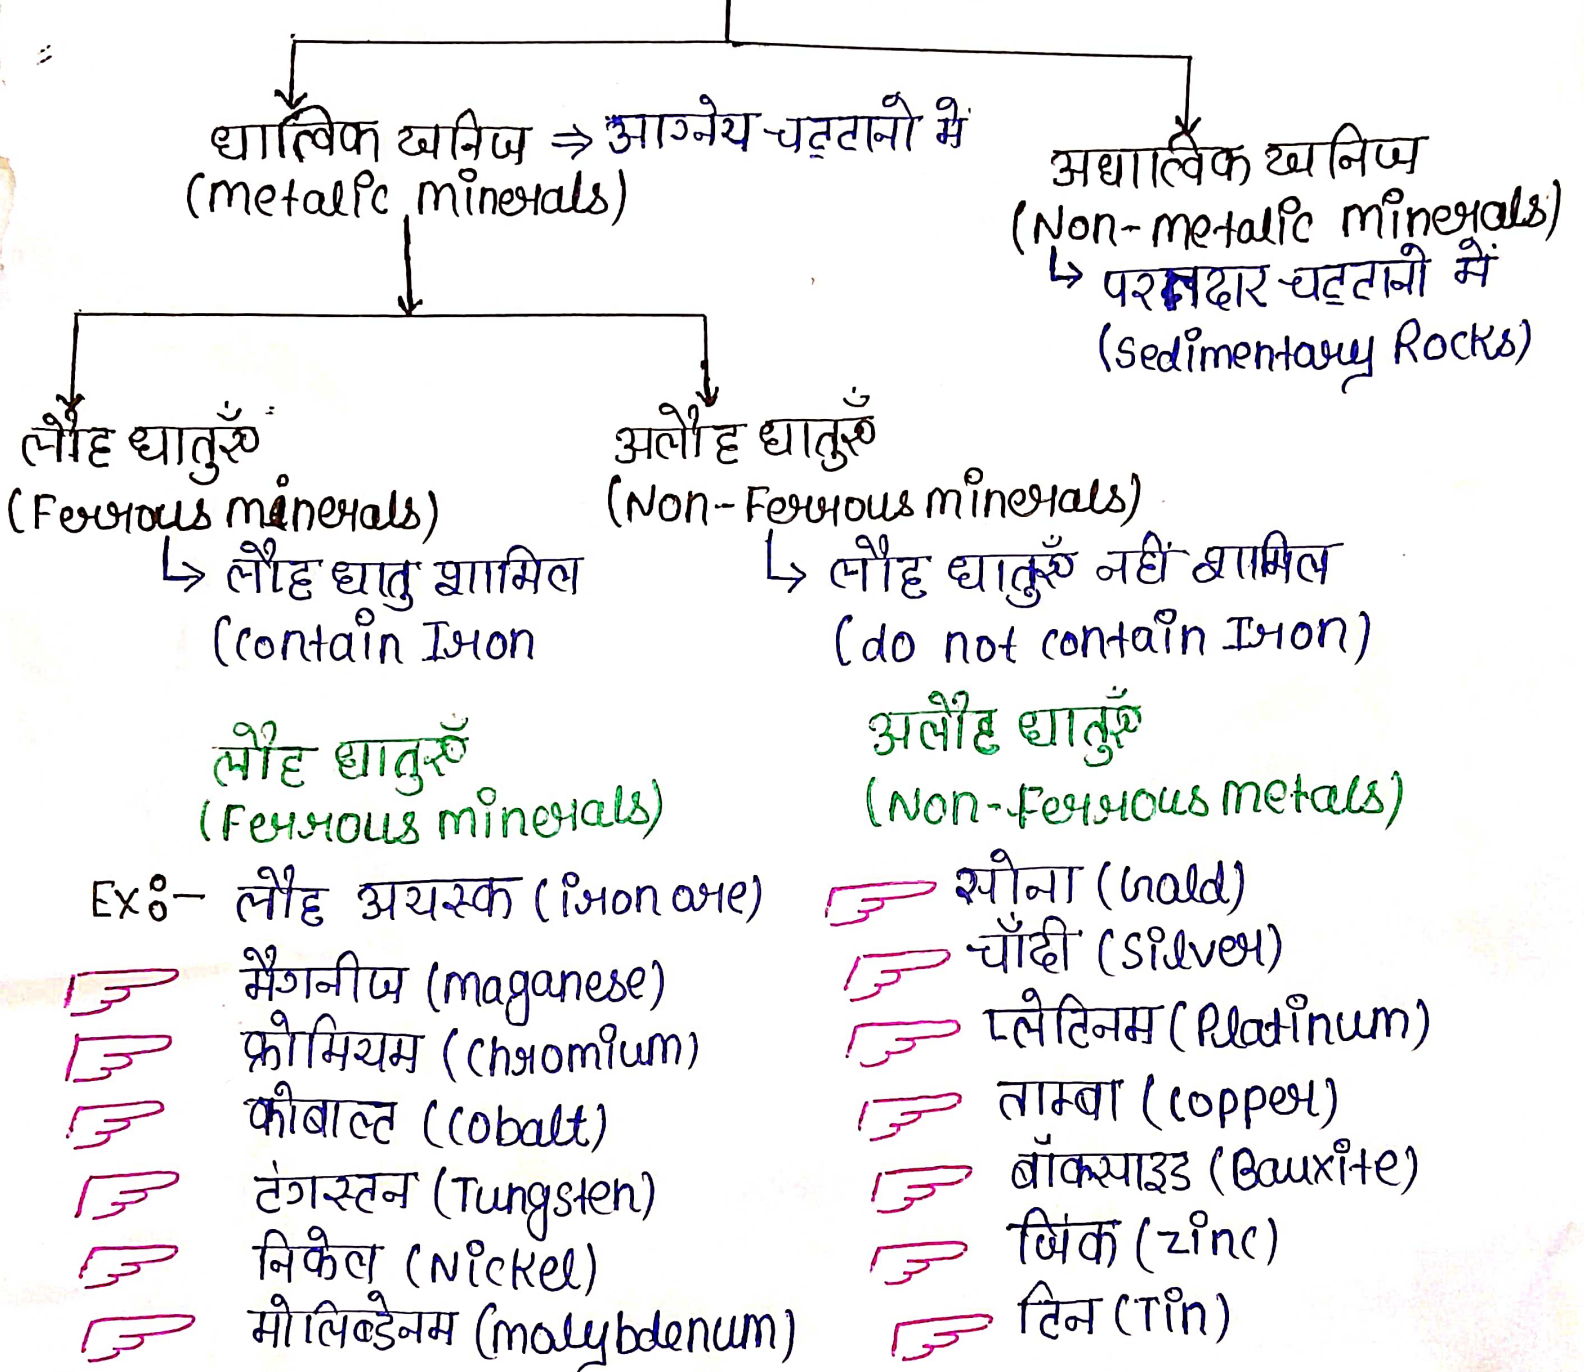 धात्विक खनिज ⇒ आग्नेय चट्टानो में
(metalic minerals)
अधात्विक खनिज
(Non-metalic minerals)
↳ परतदार चट्टानो में
(Sedimentary Rocks)
लौह धातुएँ
(Ferrous minerals)
↳ लौह धातु शामिल
(contain Iron
अलौह धातुएँ
(Non-Ferrous minerals)
↳ लौह धातुएँ नहीं शामिल
(do not contain Iron)
लौह धातुएँ
(Ferrous minerals)
Ex:- लौह अयस्क (iron ore)
मैगनीज (maganese)
क्रोमियम (chromium)
कोबाल्ट (cobalt)
टंगस्टन (Tungsten)
निकेल (Nickel)
मोलिब्डेनम (molybdenum)
अलौह धातुएँ
(Non-Ferrous metals)
सोना (Gold)
चाँदी (Silver)
प्लेटिनम (Platinum)
ताम्बा (copper)
बॉक्साइड (Bauxite)
जिंक (zinc)
टिन (Tin)